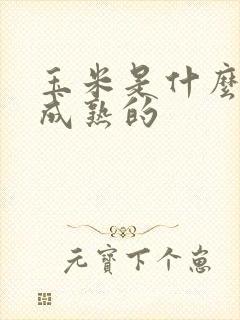 玉米是什麼
成熟的
元寶下个崽